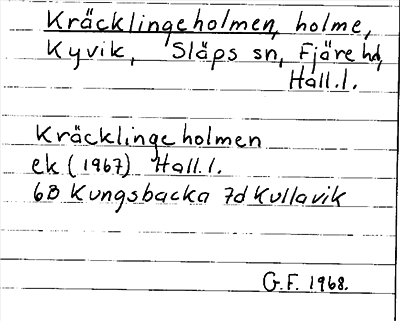 Kräcklingeholmen, holme,
Kyvik, Släps sn, Fjäre hd,
Hall.l.
Kräcklingeholmen
ek (1967) Hall.l.
6B Kungsbacka 7d Kullavik
G.F. 1968.